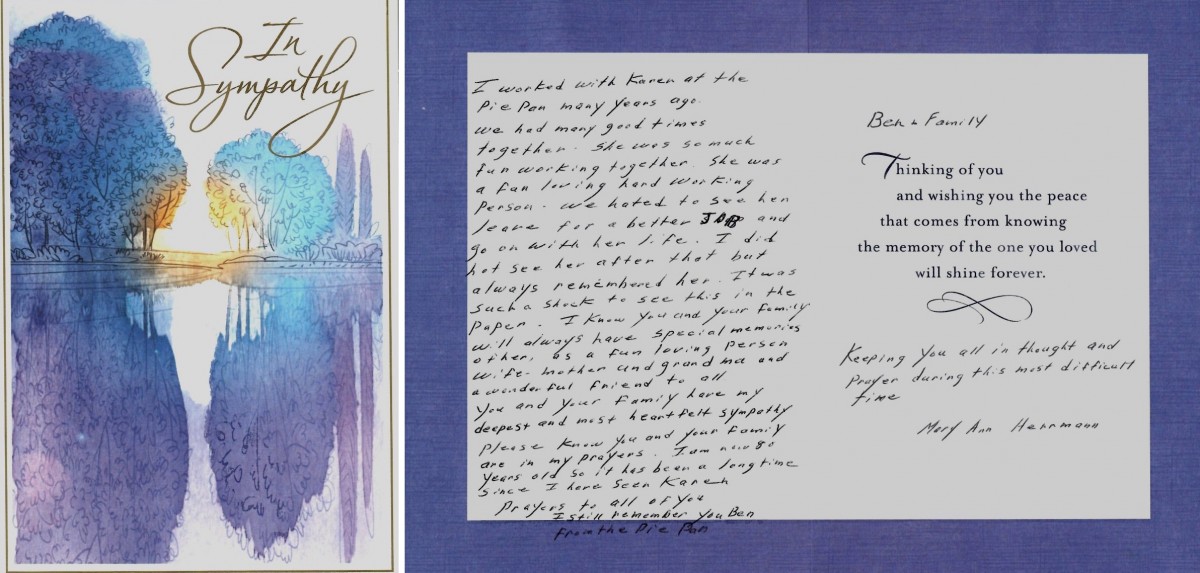 In
Sympathy
I worked with Karen at the
Pie Pan many years ago.
we had many good times
together. She was so much
fun working together. She was
a fun loving hard working
Person. we hated to see her
leave for a better JOB and
go on with her life. I did
not see her after that but
always remembered her. It was
such a shock to see this in the
Paper. I know you and your family
will always have special memories
other, as a fun loving person
wife. mother and grandma and
a wonderful friend to all
You and your family have my
deepest and most heartfelt sympathy
Please know you and your family
are in my prayers. I am now 80
years old so it has been a long time
since I have seen Karen
Prayers to all of you
I still remember you Ben
from the Pie Pan
Ben & Family
Thinking of you
and wishing you the peace
that comes from knowing
the memory of the one you loved
will shine forever.
Keeping you all in thought and
Prayer during this most difficult
time
Mary Ann Herrmann